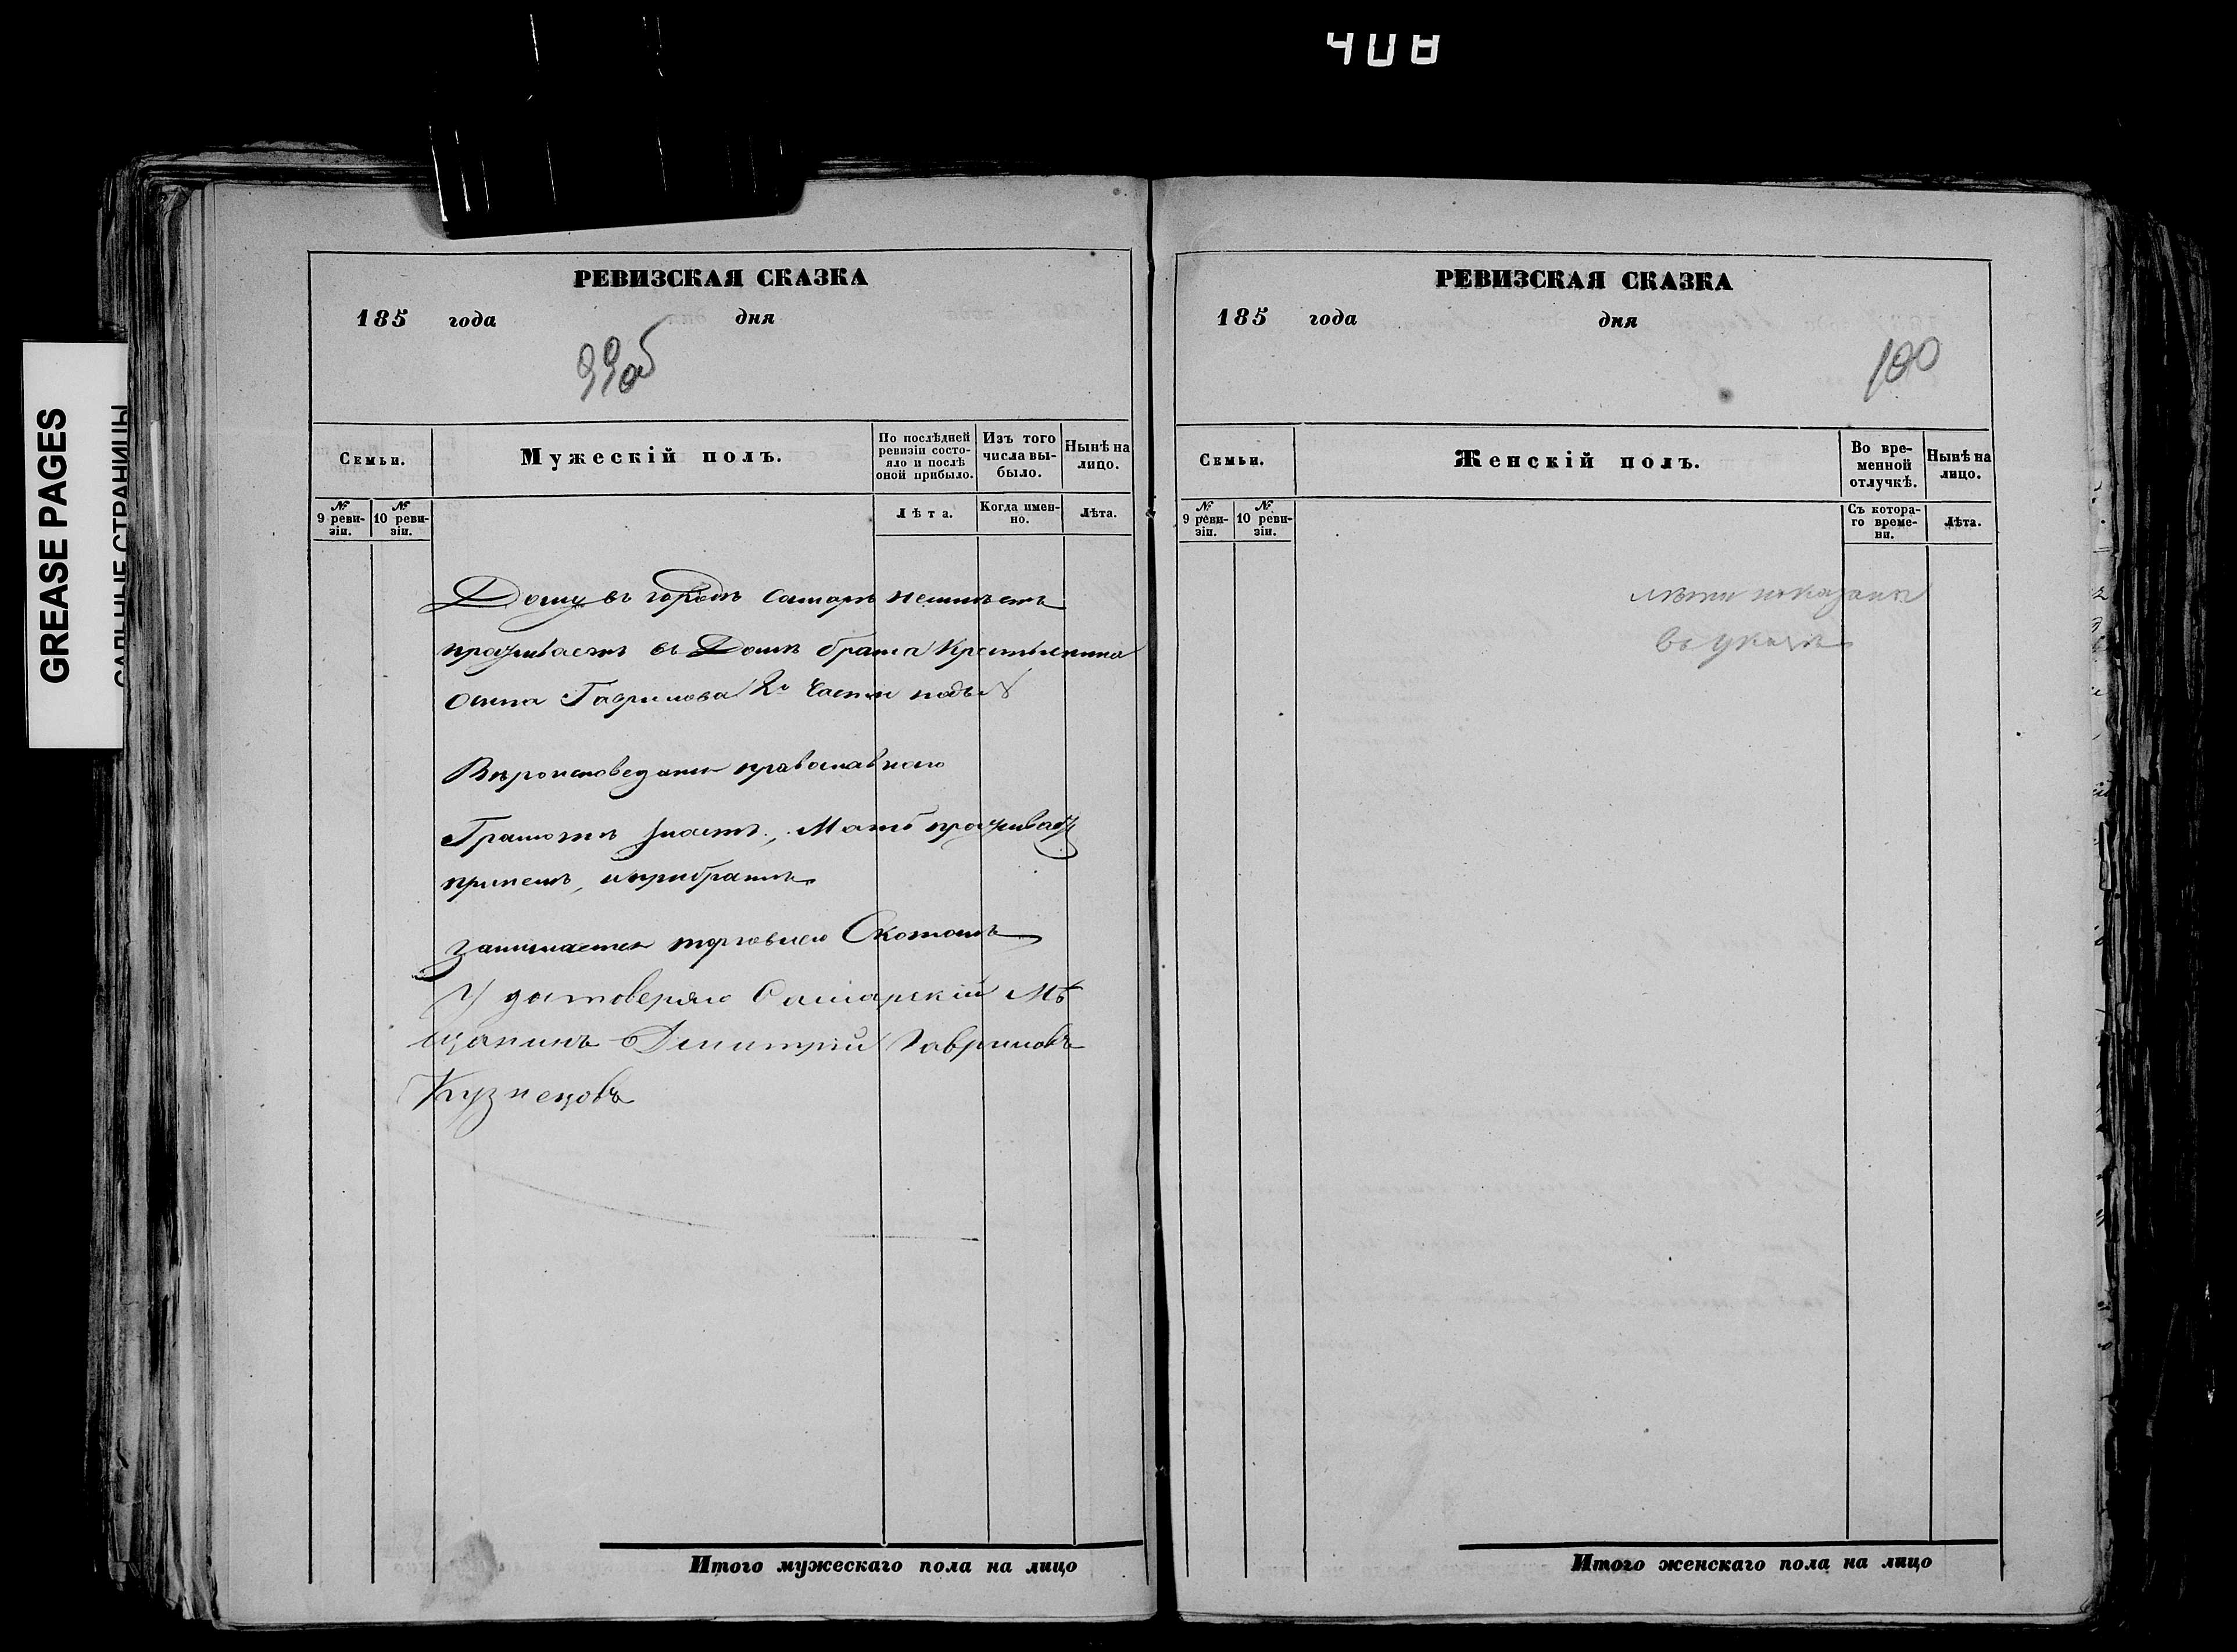 408
GREASE PAGES
САЛЬНЫЕ СТРАНИЦЫ
РЕВИЗСКАЯ СКАЗКА
185 года дня
99об
Семьи.
Мужескій полъ.
По послѣдней ревизіи состояло и послѣ оной прибыло.
Изъ того числа выбыло.
Нынѣ на лицо.
№ 9 ревизіи.
№ 10 ревизіи.
Лѣта.
Когда именно.
Лѣта.
Дому въ городѣ Самарѣ неимѣетъ
проживаетъ въ Домѣ брата Крестьянина
Осипа Гаврилова 2й Части подъ №
Вѣроисповеданія православнаго
Грамотѣ знаетъ, Мать проживаетъ
принемъ, и прибратѣ
занимается торговлею Скотомъ
Удостоверяю Самарскій Мѣ
щанинъ Димитрій Гавриловъ
Кузнецовъ
Итого мужескаго пола на лицо
РЕВИЗСКАЯ СКАЗКА
185 года дня
100
Семьи.
Женскій полъ.
Во временной отлучкѣ.
Нынѣ на лицо.
№ 9 ревизіи.
№ 10 ревизіи.
Съ котораго времени.
Лѣта.
лѣты показаны
въ указѣ
Итого женскаго пола на лицо